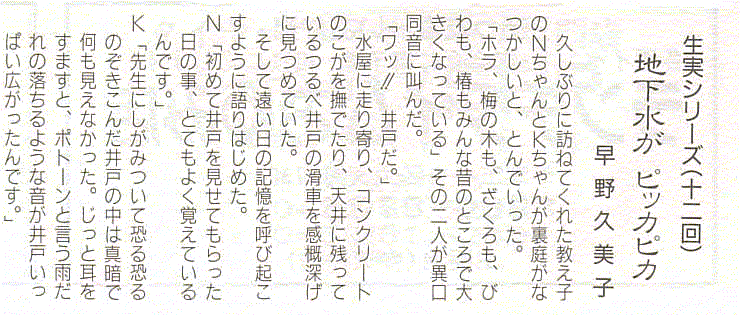 生実シリーズ(十二回)
地下水がピッカピカ
早野久美子
久しぶりに訪ねてくれた教え子
のNちゃんとKちゃんが裏庭がな
つかしいと、とんでいった。
「ホラ、梅の木も、ざくろも、び
わも、椿もみんな昔のところで大
きくなっている」その二人が異口
同音に叫んだ。
「ワッ!! 井戸だ。」
水屋に走り寄り、コンクリート
のこがを撫でたり、天井に残って
いるつるべ井戸の滑車を感慨深げ
に見つめていた。
そして遠い日の記憶を呼び起こ
すように語りはじめた。
N「初めて井戸を見せてもらった
日の事、とてもよく覚えている
んです。」
K「先生にしがみついて恐る恐る
のぞきこんだ井戸の中は真暗で
何も見えなかった。じっと耳を
すますと、ポトーンと言う雨だ
れの落ちるような音が井戸いっ
ぱい広がったんです。」